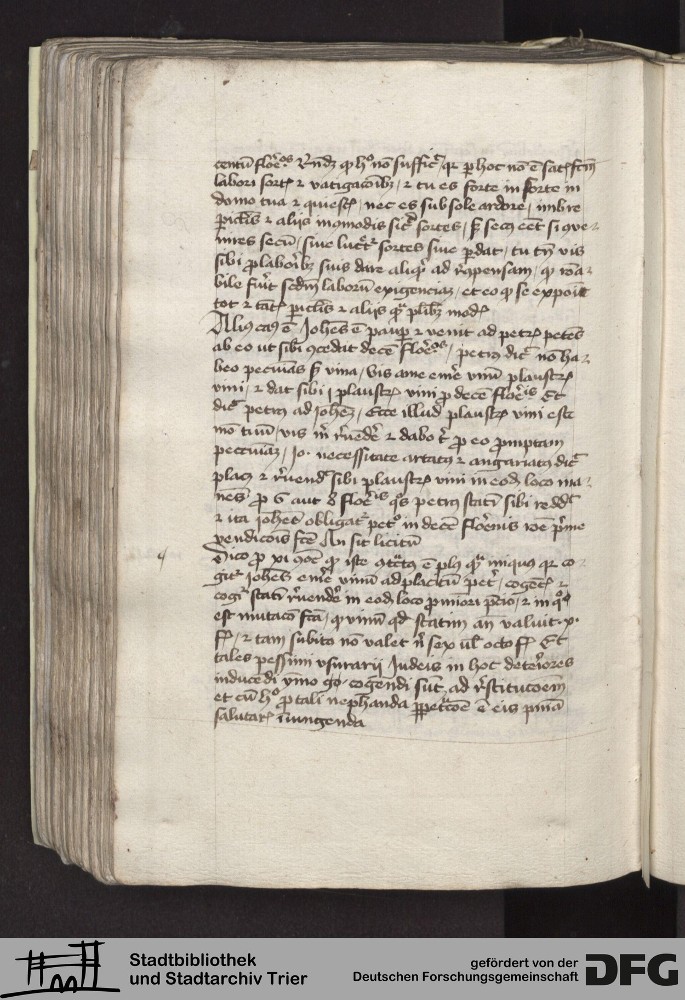 centū floꝛ̄os Rn̄dꝫ ꝙ hͦ nō suffic̄ qꝛ ꝑ hoc nō ē satꝭ fcm̄
labori fortꝭ ⁊ vatigacōibꝫ / ⁊ tu es forte in forte in
domo tua ⁊ quiescꝭ / nec es sub sole ardore / imbre
ꝑiclīs ⁊ alijs incōmodis sic̄ sortes / sꝫ secꝰ eēt si ꝯue-
nires secū / siue lucͣetͬ sortes siue ꝑdat / tu tn̄ vis
sibi ꝓ laboribꝫ suis dare aliqͥd ad
bile fuit scdm̄ laborū exigenciaꝫ / et eo ꝙ se exponit
tot ⁊ tātꝭ ꝑiclīs ⁊ alijs qͣ plībꝫ modꝭ
Aliꝰ casꝰ ē Johēs ē pauꝑ ⁊ venit ad petꝝ petēs
ab eo ut sibi ꝯcedat decē floꝛ̄os / petrꝰ dic̄ nō ha-
beo pecunias sꝫ vina / vis a me emē vinū plaustꝝ
vini / ⁊ dat sibi j plaustꝝ vini ꝓ decē floꝛ̄is Et
dic̄ petrꝰ ad johēꝫ / Ecce illud plaustꝝ vini est
mō tuū / vis m̄ reuēdē ⁊ dabo tͥ ꝓ eo promptam
pecuniaꝫ / Jo. necessitate artatꝰ ⁊ angariatꝰ dic̄
placꝫ ⁊ reuend sibi plaustꝝ vini in eodꝫ loco ma-
nēs ꝓ 6 aut 8 floꝛ̄is qͦs petrꝰ statī sibi reddͭ
⁊ ita johēs obligatͬ petͦ in decē floꝛenis rōe pͥme
vendicōis fcē An sit licitū
Dico ꝓ xi ꝯcͤ ꝙ iste ꝯtͣctꝰ ē plꝰ qͣ iniquꝰ qꝛ co-
gitͬ Johēs emē vinū ad placitū petͥ / cogetͬ ⁊
cogiͬ statī reuendē in eodꝫ loco ꝓ minori pcͥo / ⁊ in qͦ
est mutacō fcā / ꝙ vinū qd statim an̄ valuit .x.
ff / ⁊ tam subito nō valet nͥ sex ul̄ octo ff Et
tales pessimi vsurarij Judeis in hoc deteriores
inducēdi ymo gͦ cogendi sūt ad rstitucōem
et cū hͦ ꝓ tali nephanda ꝑpetͣcōe ē eis pn̄ia
salutarꝭ iniungenda
Stadtbibliothek
und Stadtarchiv Trier
gefördert von der
Deutschen Forschungsgemeinschaft
DFG